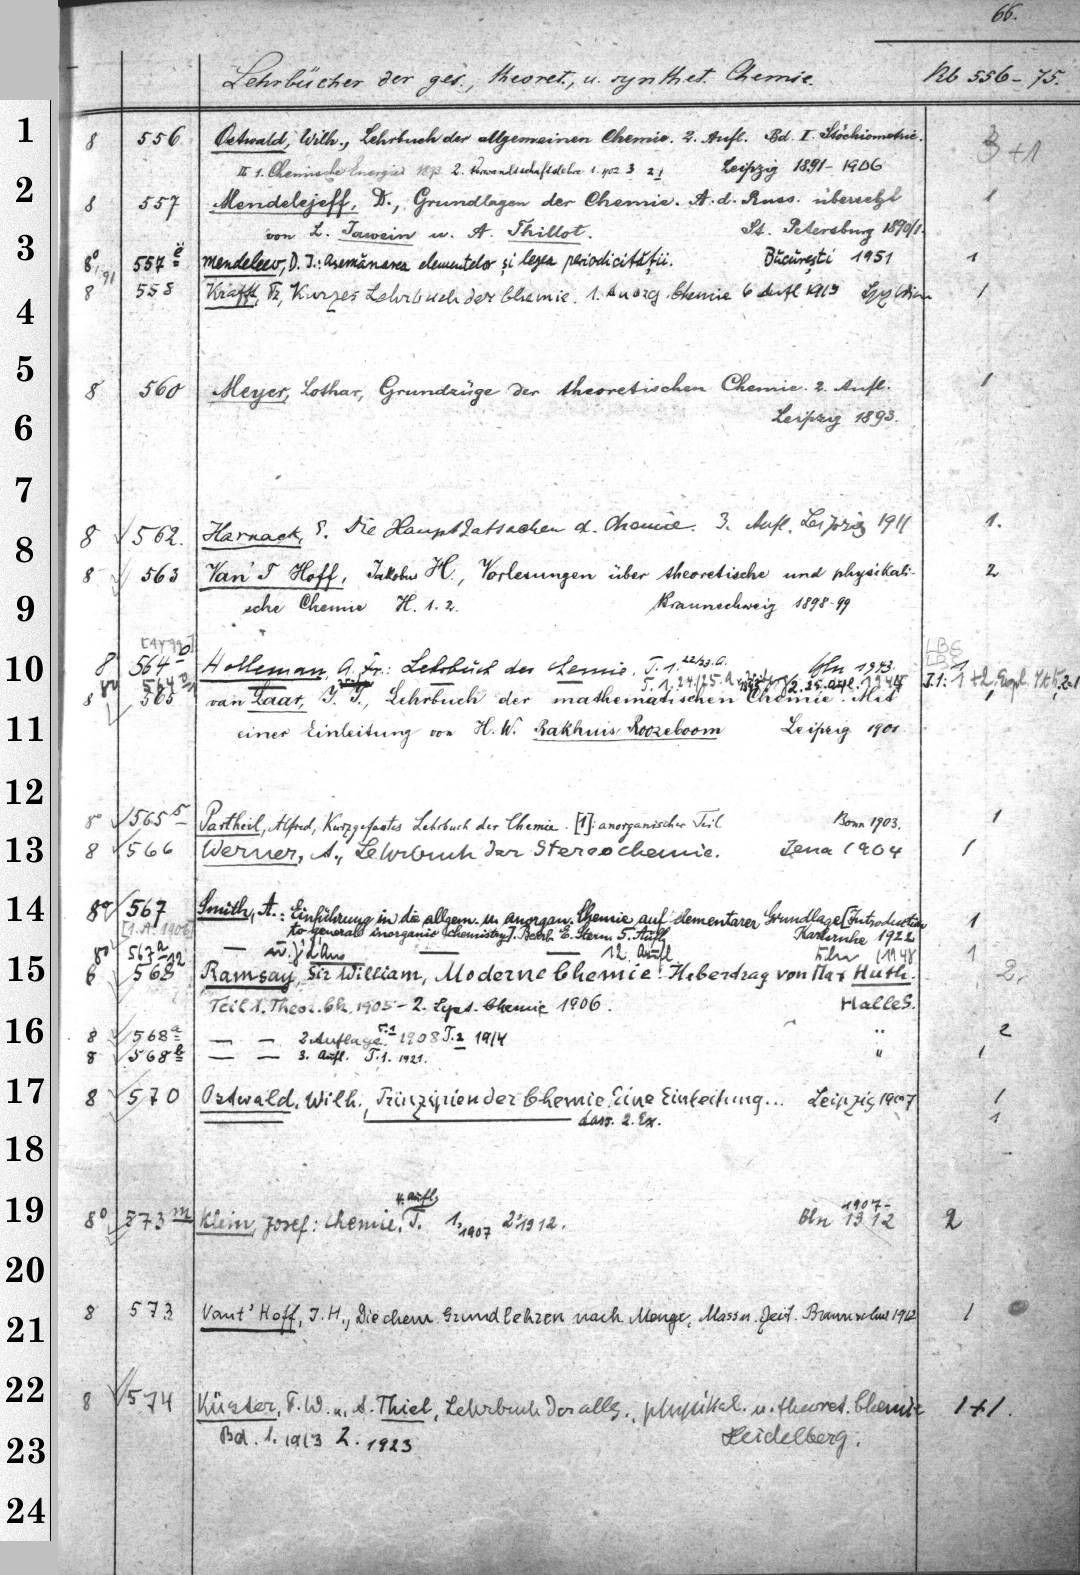 66.
Lehrbücher der ges., theoret., u. synthet. Chemie. Nb 556-75.
1
8 556 Ostwald, Wilh., Lehrbuch der allgemeinen Chemie. 2. Aufl. Bd. I. Stöchiometrie. 3 +1
II 1. Chemische Energie 1893 2. Verwandtschaftslehre Leipzig 1891-1906
2
8 557 Mendelejeff, D., Grundlagen der Chemie. A. d. Russ. übersetzt 1
von L. Jawein u. A. Thillot. St. Petersburg 1890/1.
3
8° 557 e Mendeleev, D. I.: Asemănarea elementelor și legea periodicității. București 1951 1
8 558 Krafft, Fr, Kurzes Lehrbuch der Chemie. 1. Anorg. Chemie 6 Aufl 1913 1
4
5
8 560 Meyer, Lothar, Grundzüge der theoretischen Chemie. 2. Aufl. 1
Leipzig 1893.
6
7
8 562. Harnack, E. Die Haupttatsachen d. Chemie. 3. Aufl. Leipzig 1911 1.
8
8 563 Van' T Hoff, Jakobus H., Vorlesungen über theoretische und physikali- 2
9
sche Chemie H. 1. 2. Braunschweig 1898-99
10
8 564 Holleman, A. Fr.: Lehrbuch der Chemie. T. 1. 22/23. A. Bln 1943. 1
8 565 van Laar, J. J., Lehrbuch der mathematischen Chemie. Mit 1
11
einer Einleitung von H. W. Bakhuis Roozeboom Leipzig 1901
12
8° 565 5 Partheil, Alfred, Kurzgefasstes Lehrbuch der Chemie. [1]: anorganischer Teil Bonn 1903. 1
13
8 566 Werner, A., Lehrbuch der Stereochemie. Jena 1904 1
14
8° 567 Smith, A.: Einführung in die allgem. u. anorgan. Chemie auf elementarer Grundlage [Introduction 1
[1. A. 1906] to general inorganic chemistry]. Bearb. E. Stern. 5. Aufl Karlsruhe 1922
8° 567 a-12 — u. J. d'Ans — — 12. Aufl 1948 1
15
8 568 Ramsay, Sir William, Moderne Chemie. Uebertrag von Max Huth. 2.
Teil 1. Theor. Ch. 1905 - 2. Syst. Chemie 1906. Halle S.
16
8 568 a — — 2 Auflage. T. 1 1908 T. 2 1914 " 2
8 568 b — — 3. Aufl. T. 1. 1921. " 1
17
8 570 Ostwald, Wilh., Prinzipien der Chemie. Eine Einleitung... Leipzig 1907 1
dass. 2. Ex. 1
18
19
4. Aufl.
8° 573 m Klein, Josef: Chemie. T. 1. 1907 2. 1912. Bln 1907-1912 2
20
21
8 573 Vant' Hoff, J. H., Die chem. Grundlehren nach Menge, Mass u. Zeit. Braunschw 1912 1
22
8 574 Küster, F. W. u. A. Thiel, Lehrbuch der allg., physikal. u. theoret. Chemie 1+1.
23
Bd. 1. 1913 2. 1923 Heidelberg.
24